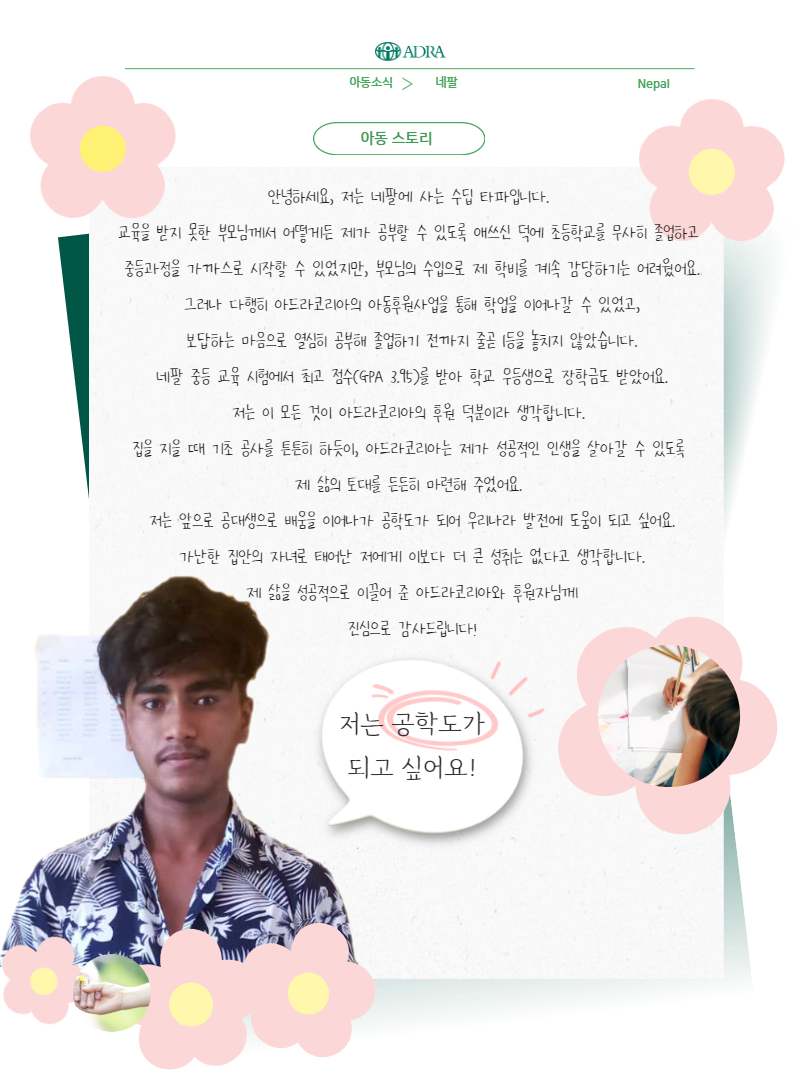 ADRA
아동소식 > 네팔 Nepal
아동 스토리
안녕하세요, 저는 네팔에 사는 수딥 타파입니다.
교육을 받지 못한 부모님께서 어떻게든 제가 공부할 수 있도록 애쓰신 덕에 초등학교를 무사히 졸업하고
중등과정을 가까스로 시작할 수 있었지만, 부모님의 수입으로 제 학비를 계속 감당하기는 어려웠어요.
그러나 다행히 아드라코리아의 아동후원사업을 통해 학업을 이어나갈 수 있었고,
보답하는 마음으로 열심히 공부해 졸업하기 전까지 줄곧 1등을 놓치지 않았습니다.
네팔 중등 교육 시험에서 최고 점수(GPA 3.95)를 받아 학교 우등생으로 장학금도 받았어요.
저는 이 모든 것이 아드라코리아의 후원 덕분이라 생각합니다.
집을 지을 때 기초 공사를 튼튼히 하듯이, 아드라코리아는 제가 성공적인 인생을 살아갈 수 있도록
제 삶의 토대를 든든히 마련해 주었어요.
저는 앞으로 공대생으로 배움을 이어나가 공학도가 되어 우리나라 발전에 도움이 되고 싶어요.
가난한 집안의 자녀로 태어난 저에게 이보다 더 큰 성취는 없다고 생각합니다.
제 삶을 성공적으로 이끌어 준 아드라코리아와 후원자님께
진심으로 감사드립니다!
저는 공학도가
되고 싶어요!